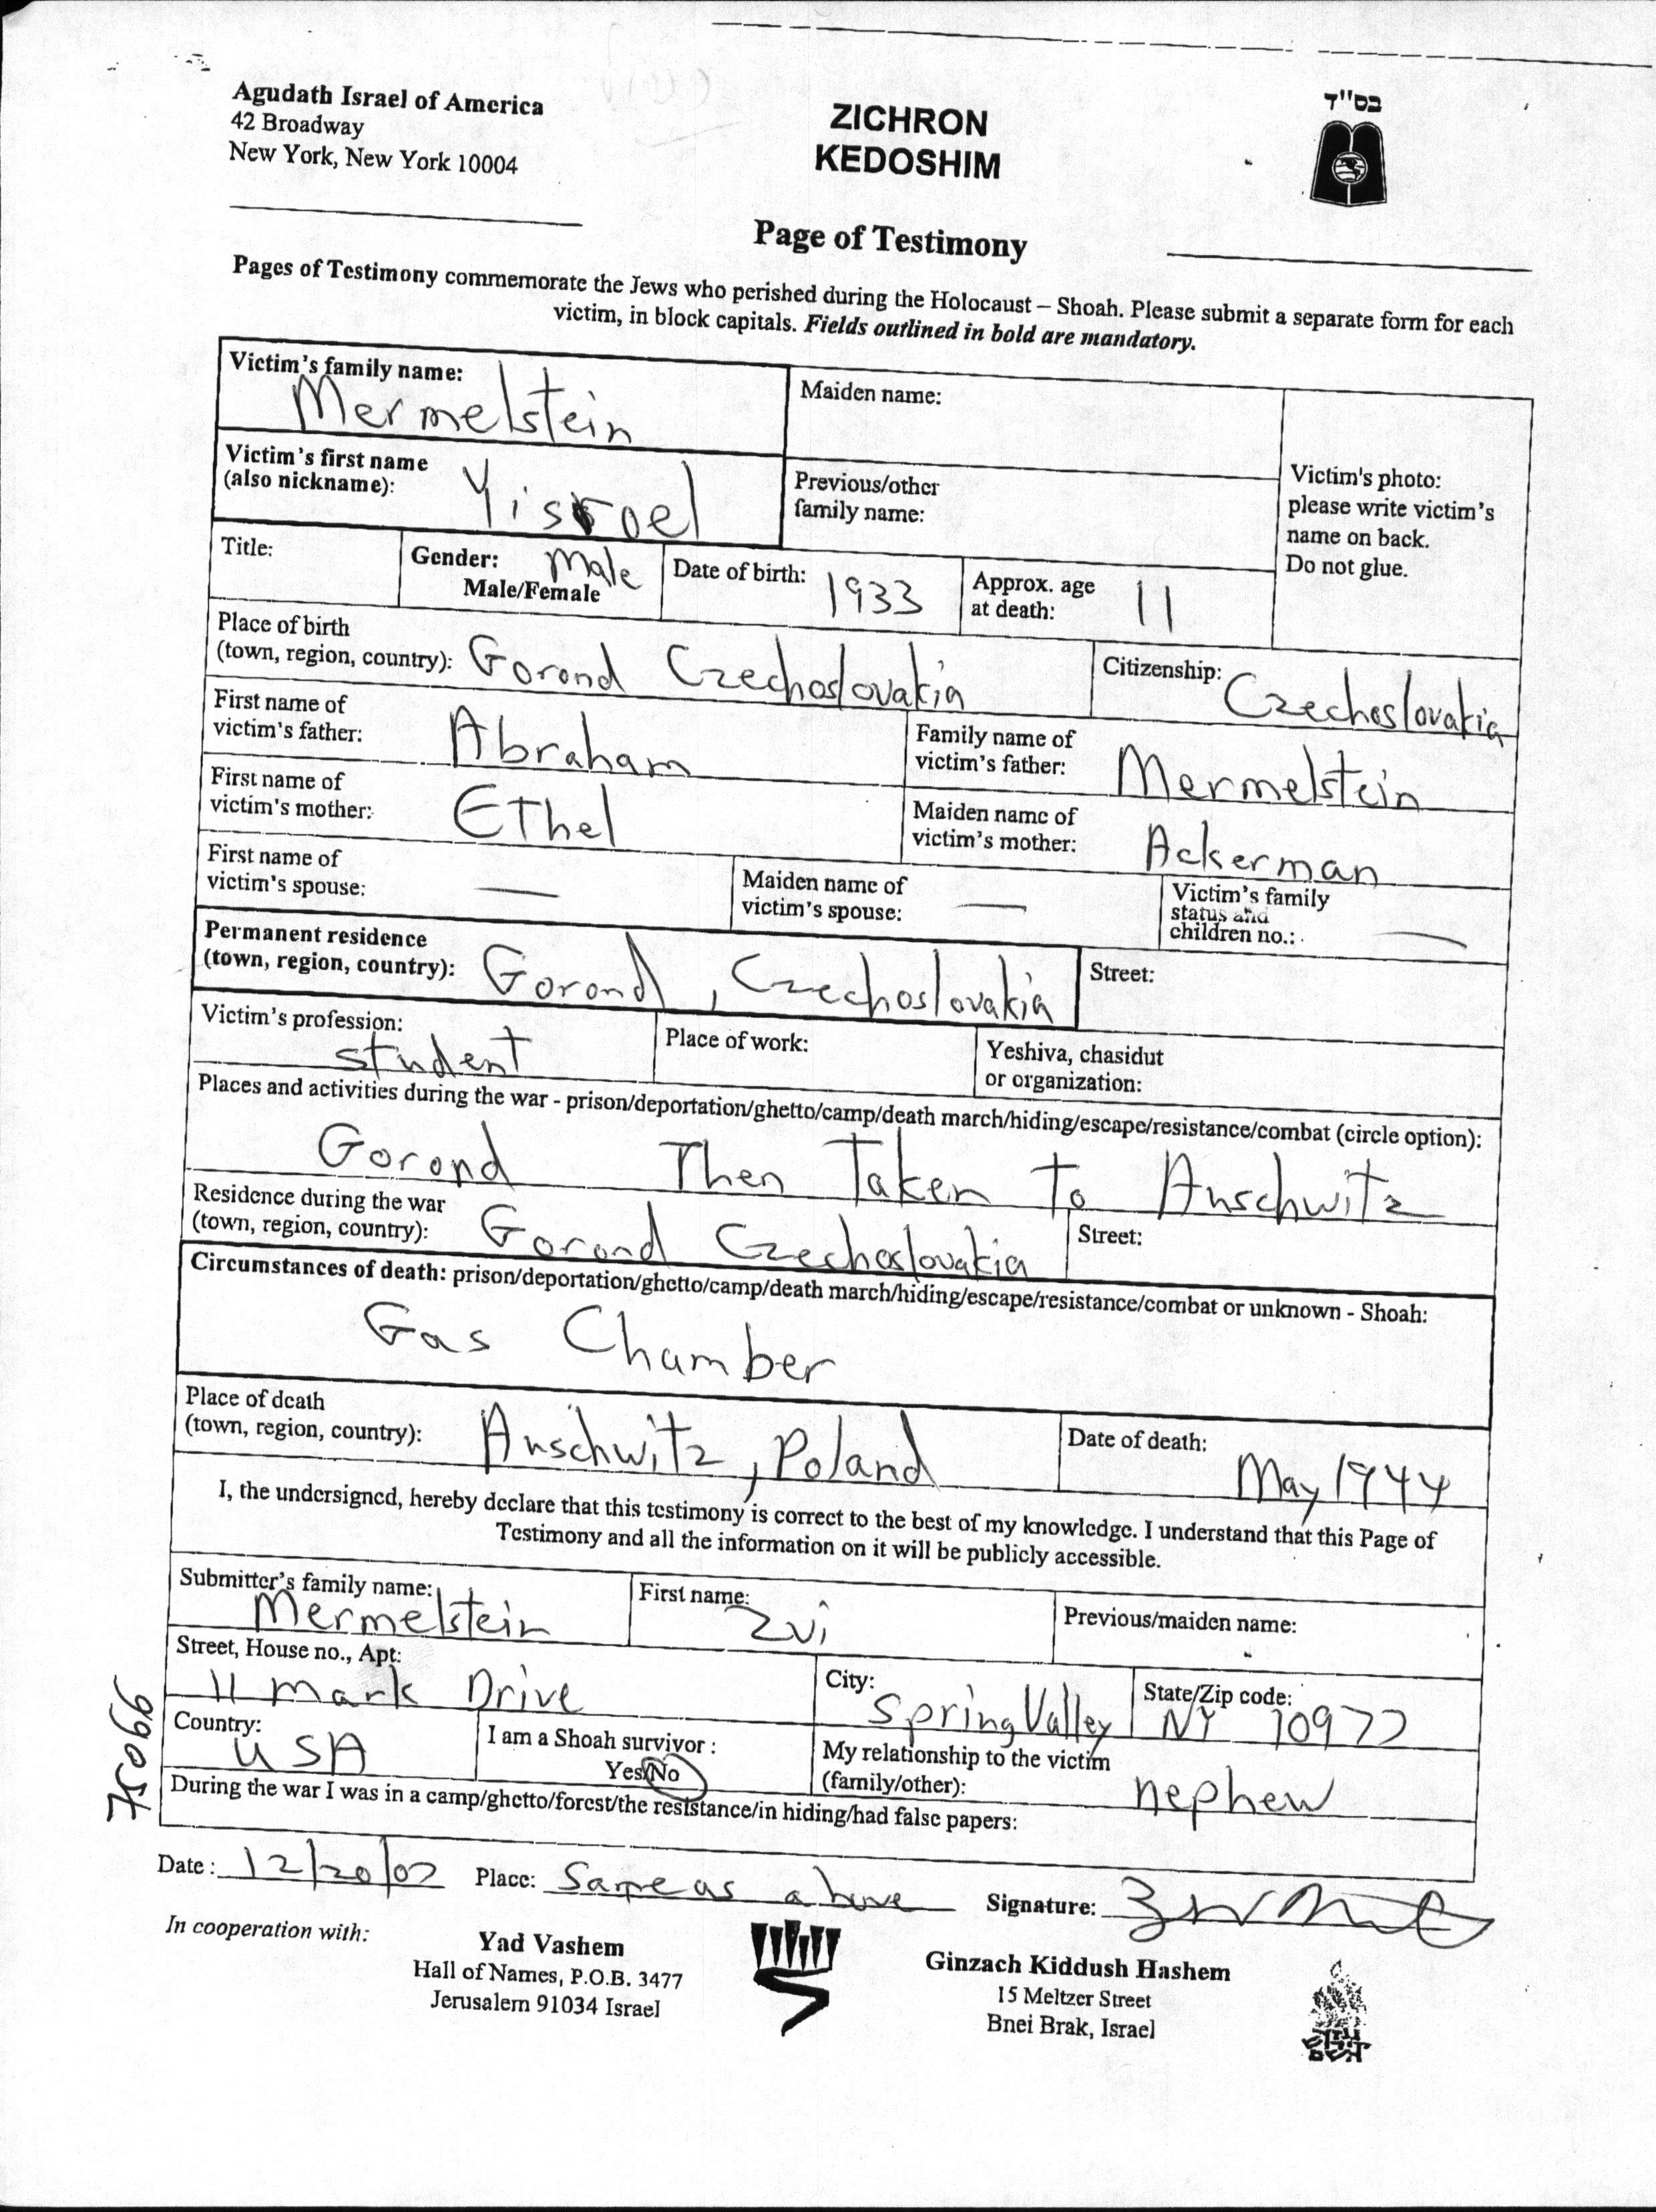 Agudath Israel of America
42 Broadway
New York, New York 10004
ZICHRON
KEDOSHIM
בס"ד
Page of Testimony
Pages of Testimony commemorate the Jews who perished during the Holocaust – Shoah. Please submit a separate form for each
victim, in block capitals. Fields outlined in bold are mandatory.
Victim's family name:
Mermelstein
Maiden name:
Victim's first name
(also nickname):
Yisroel
Previous/other
family name:
Victim's photo:
please write victim's
name on back.
Do not glue.
Title:
Gender: Male
Male/Female
Date of birth: 1933
Approx. age
at death: 11
Place of birth
(town, region, country): Gorond Czechoslovakia
Citizenship: Czechoslovakia
First name of
victim's father: Abraham
Family name of
victim's father: Mermelstein
First name of
victim's mother: Ethel
Maiden name of
victim's mother: Ackerman
First name of
victim's spouse: —
Maiden name of
victim's spouse: —
Victim's family
status and
children no.: —
Permanent residence
(town, region, country): Gorond, Czechoslovakia
Street:
Victim's profession:
student
Place of work:
Yeshiva, chasidut
or organization:
Places and activities during the war - prison/deportation/ghetto/camp/death march/hiding/escape/resistance/combat (circle option):
Gorond Then Taken to Auschwitz
Residence during the war
(town, region, country): Gorond Czechoslovakia
Street:
Circumstances of death: prison/deportation/ghetto/camp/death march/hiding/escape/resistance/combat or unknown - Shoah:
Gas Chamber
Place of death
(town, region, country): Auschwitz, Poland
Date of death:
May 1944
I, the undersigned, hereby declare that this testimony is correct to the best of my knowledge. I understand that this Page of
Testimony and all the information on it will be publicly accessible.
Submitter's family name:
Mermelstein
First name:
Zvi
Previous/maiden name:
Street, House no., Apt:
11 Mark Drive
City:
Spring Valley
State/Zip code:
NY 10977
Country:
USA
I am a Shoah survivor :
Yes/No
My relationship to the victim
(family/other): nephew
During the war I was in a camp/ghetto/forest/the resistance/in hiding/had false papers:
75066
Date: 12/20/02 Place: Same as above Signature:
In cooperation with:
Yad Vashem
Hall of Names, P.O.B. 3477
Jerusalem 91034 Israel
Ginzach Kiddush Hashem
15 Meltzer Street
Bnei Brak, Israel